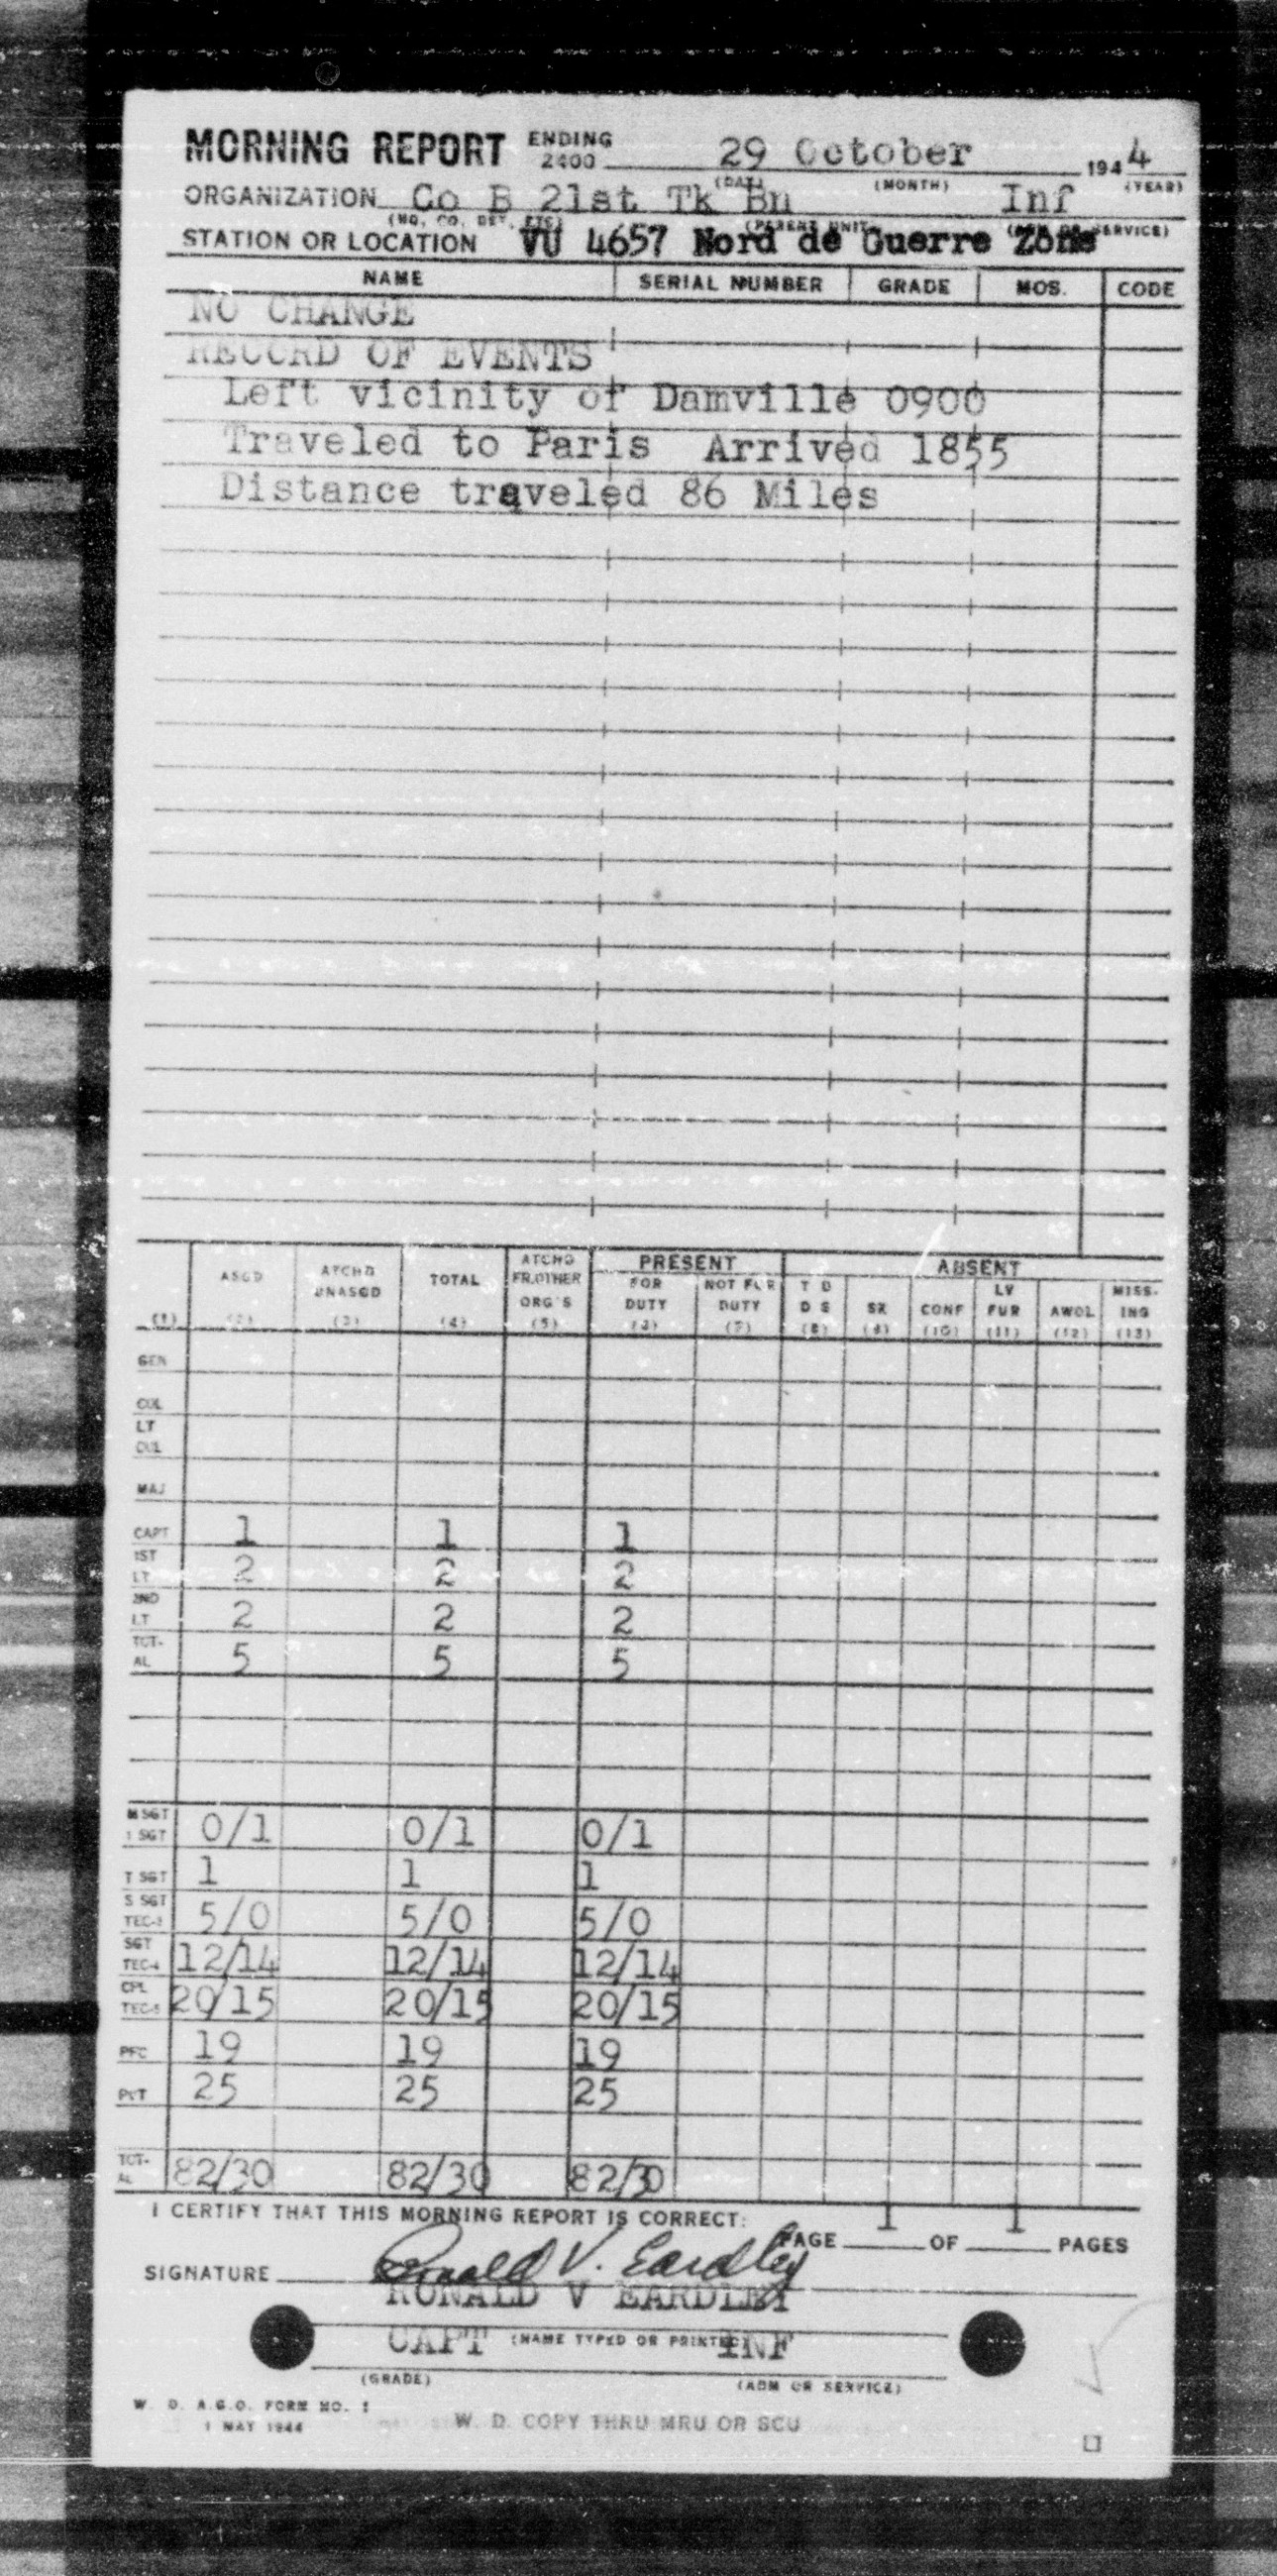 MORNING REPORT ENDING 2400 29 October 1944
(DAY) (MONTH) (YEAR)
ORGANIZATION Co B 21st Tk Bn Inf
(HQ, CO, DET, ETC) (PARENT UNIT) (ARM OR SERVICE)
STATION OR LOCATION VU 4657 Nord de Guerre Zone
NAME SERIAL NUMBER GRADE MOS. CODE
NO CHANGE
RECORD OF EVENTS
Left vicinity of Damville 0900
Traveled to Paris Arrived 1855
Distance traveled 86 Miles
ASGD ATCHD UNASGD TOTAL ATCHD FR.OTHER ORG'S PRESENT FOR DUTY NOT FOR DUTY ABSENT T D D S SK CONF LV FUR AWOL MISS-ING
(1) (2) (3) (4) (5) (6) (7) (8) (9) (10) (11) (12) (13)
GEN
COL
LT COL
MAJ
CAPT 1 1 1
1ST LT 2 2 2
2ND LT 2 2 2
TOT-AL 5 5 5
M SGT 1 SGT 0/1 0/1 0/1
T SGT 1 1 1
S SGT TEC-3 5/0 5/0 5/0
SGT TEC-4 12/14 12/14 12/14
CPL TEC-5 20/15 20/15 20/15
PFC 19 19 19
PVT 25 25 25
TOT-AL 82/30 82/30 82/30
I CERTIFY THAT THIS MORNING REPORT IS CORRECT:
PAGE 1 OF 1 PAGES
SIGNATURE Ronald V. Eardley
RONALD V EARDLEY
CAPT (NAME TYPED OR PRINTED) INF
(GRADE) (ARM OR SERVICE)
W. D. A.G.O. FORM NO. 1
1 MAY 1944
W. D. COPY THRU MRU OR SCU